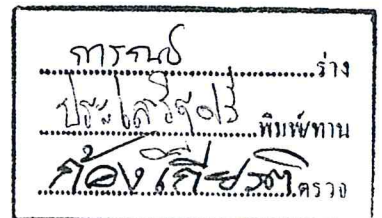 การณย์ ร่าง
ประเสริฐศรี พิมพ์/ทาน
ก้องเกียรติ ตรวจ